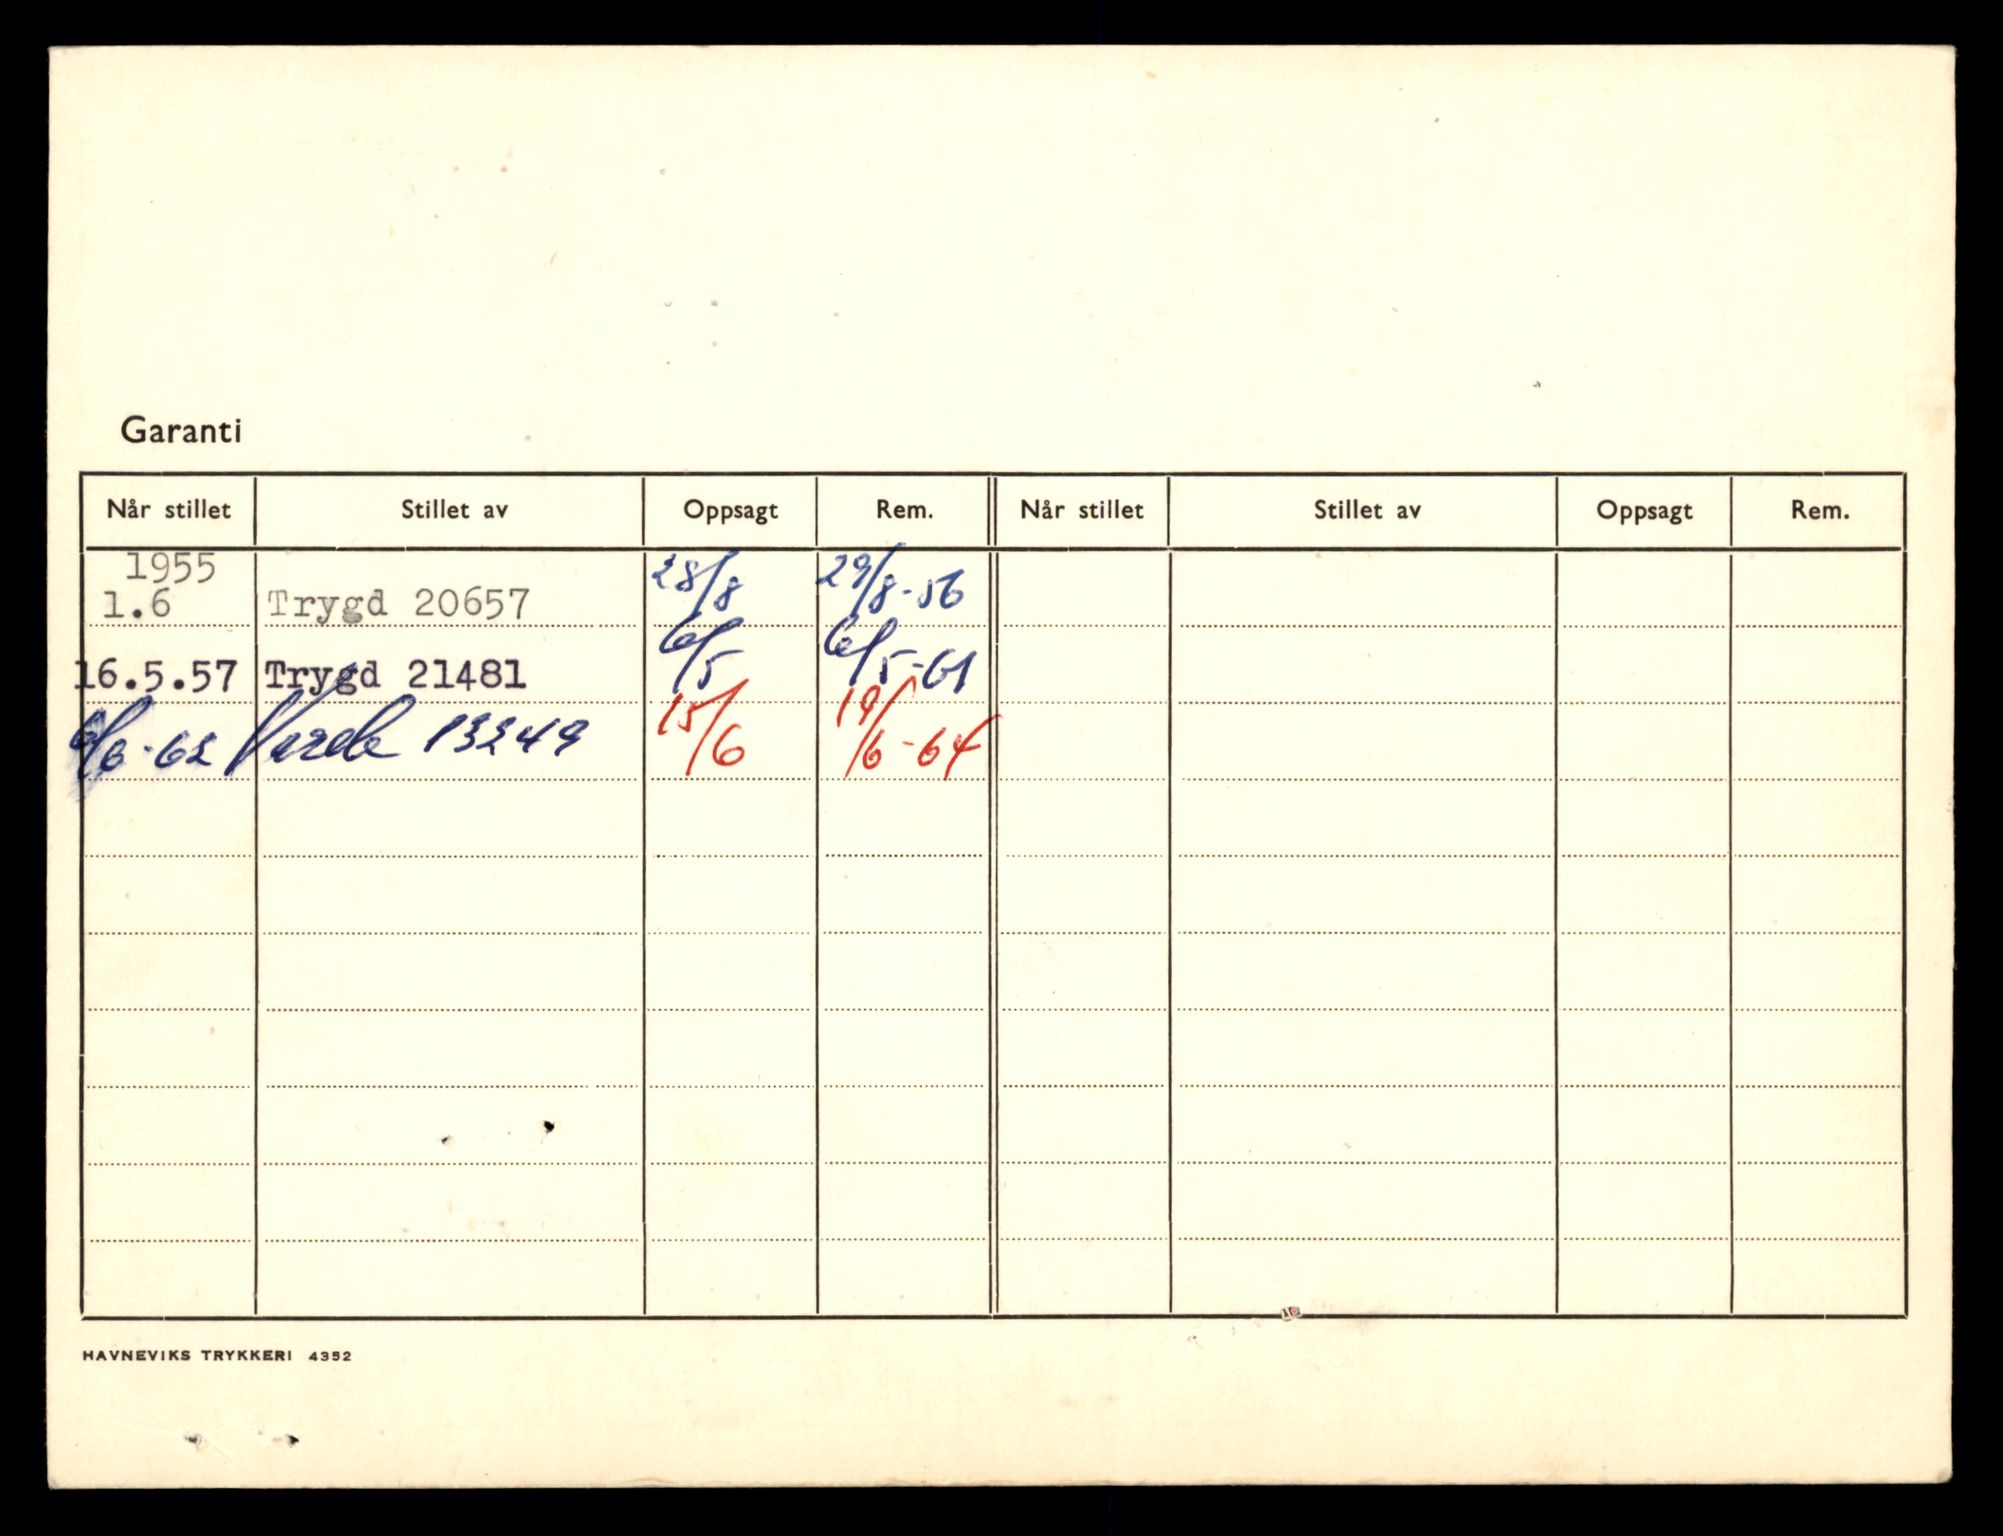 Garanti
Når stillet Stillet av Oppsagt Rem. Når stillet Stillet av Oppsagt Rem.
1955 28/8 29/8-56
1.6 Trygd 20657
16.5.57 Trygd 21481 6/5 6/5-61
-62 13249 15/6 19/6-64
HAVNEVIKS TRYKKERI 4352